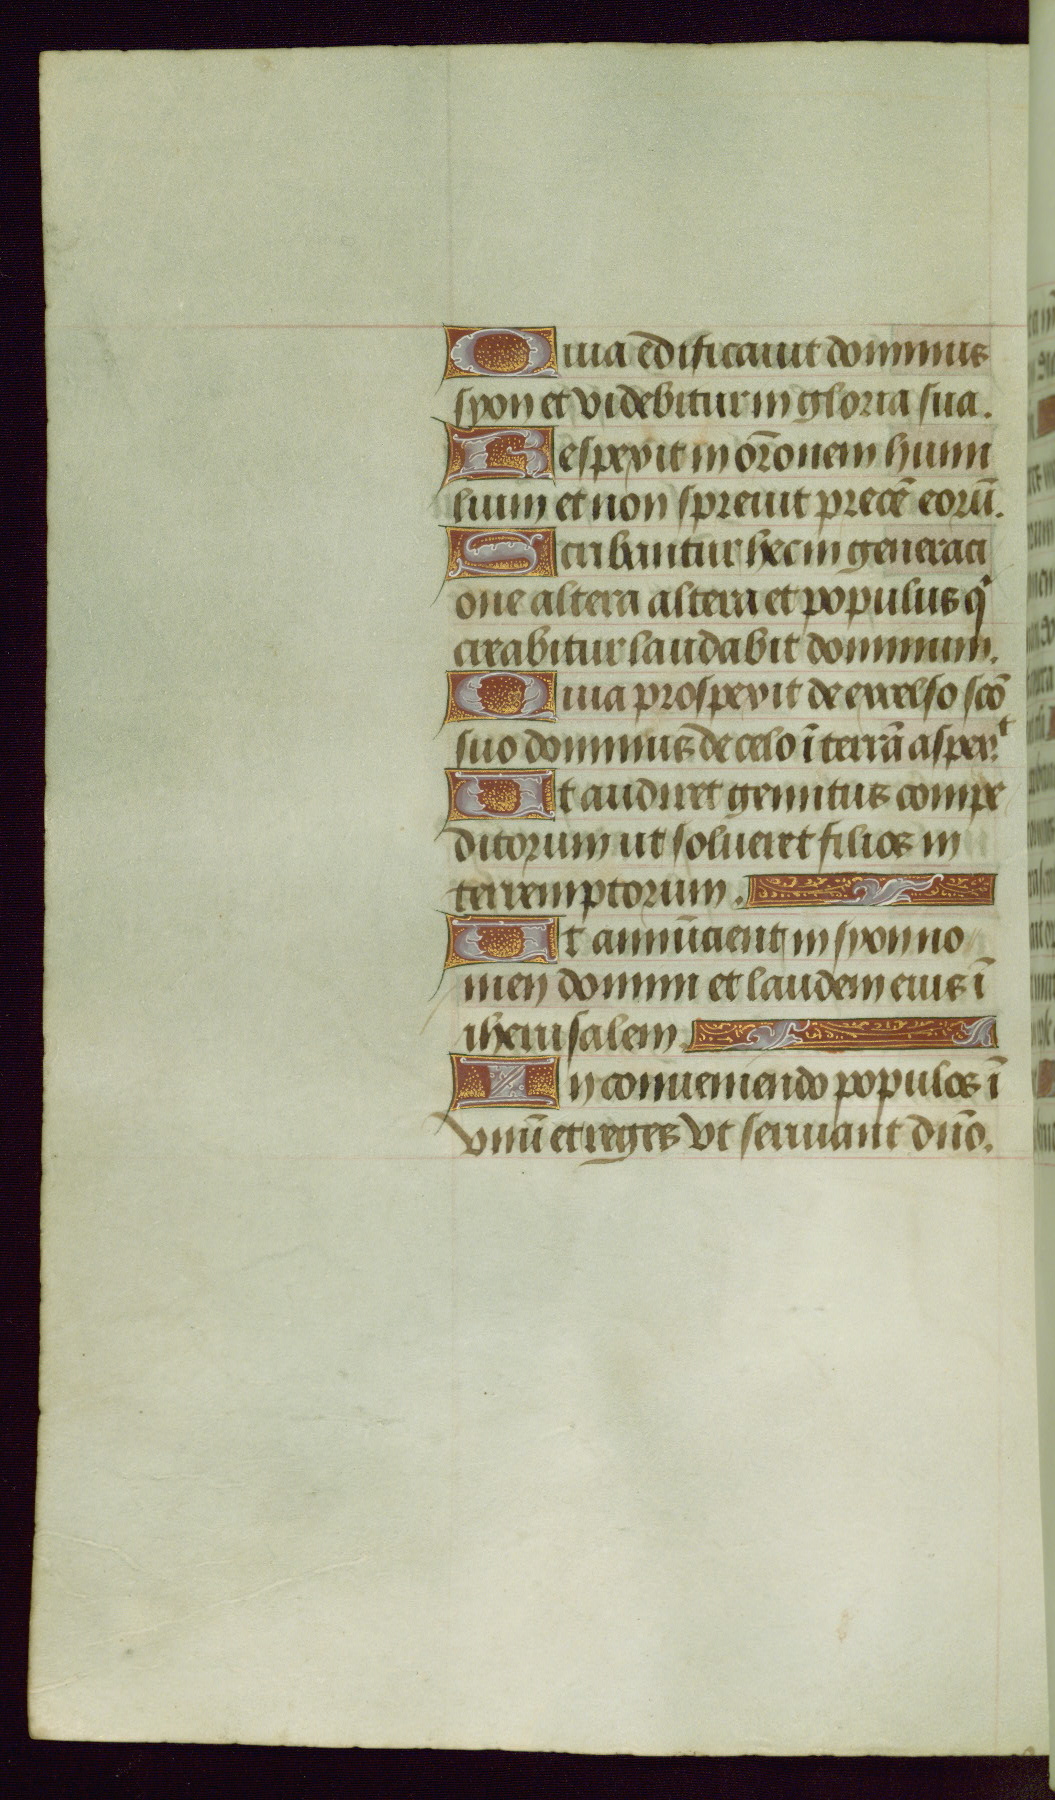 Quia edificauit dominus
syon et videbitur in gloria sua.
Respexit in or̄onem humi
lium et non spreuit precē eorū.
Scribantur hec in generaci
one altera altera et populus q̇
creabitur laudabit dominum.
Quia prospexit de excelso scō
suo dominus de celo ī terrā aspex᷑ᵗ
Ut audiret gemitus compe
ditorum ut solueret filios in
terremptorum.
Ut annūcient in syon no
men domini et laudem eius ī
iherusalem.
In conueniendo populos ī
vnū et reges vt seruiant dn̄o.